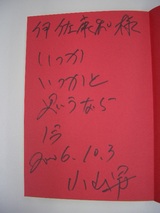 伊佐康和様
いつか
いつかと
思うなら
今
2006.10.3
小山昇